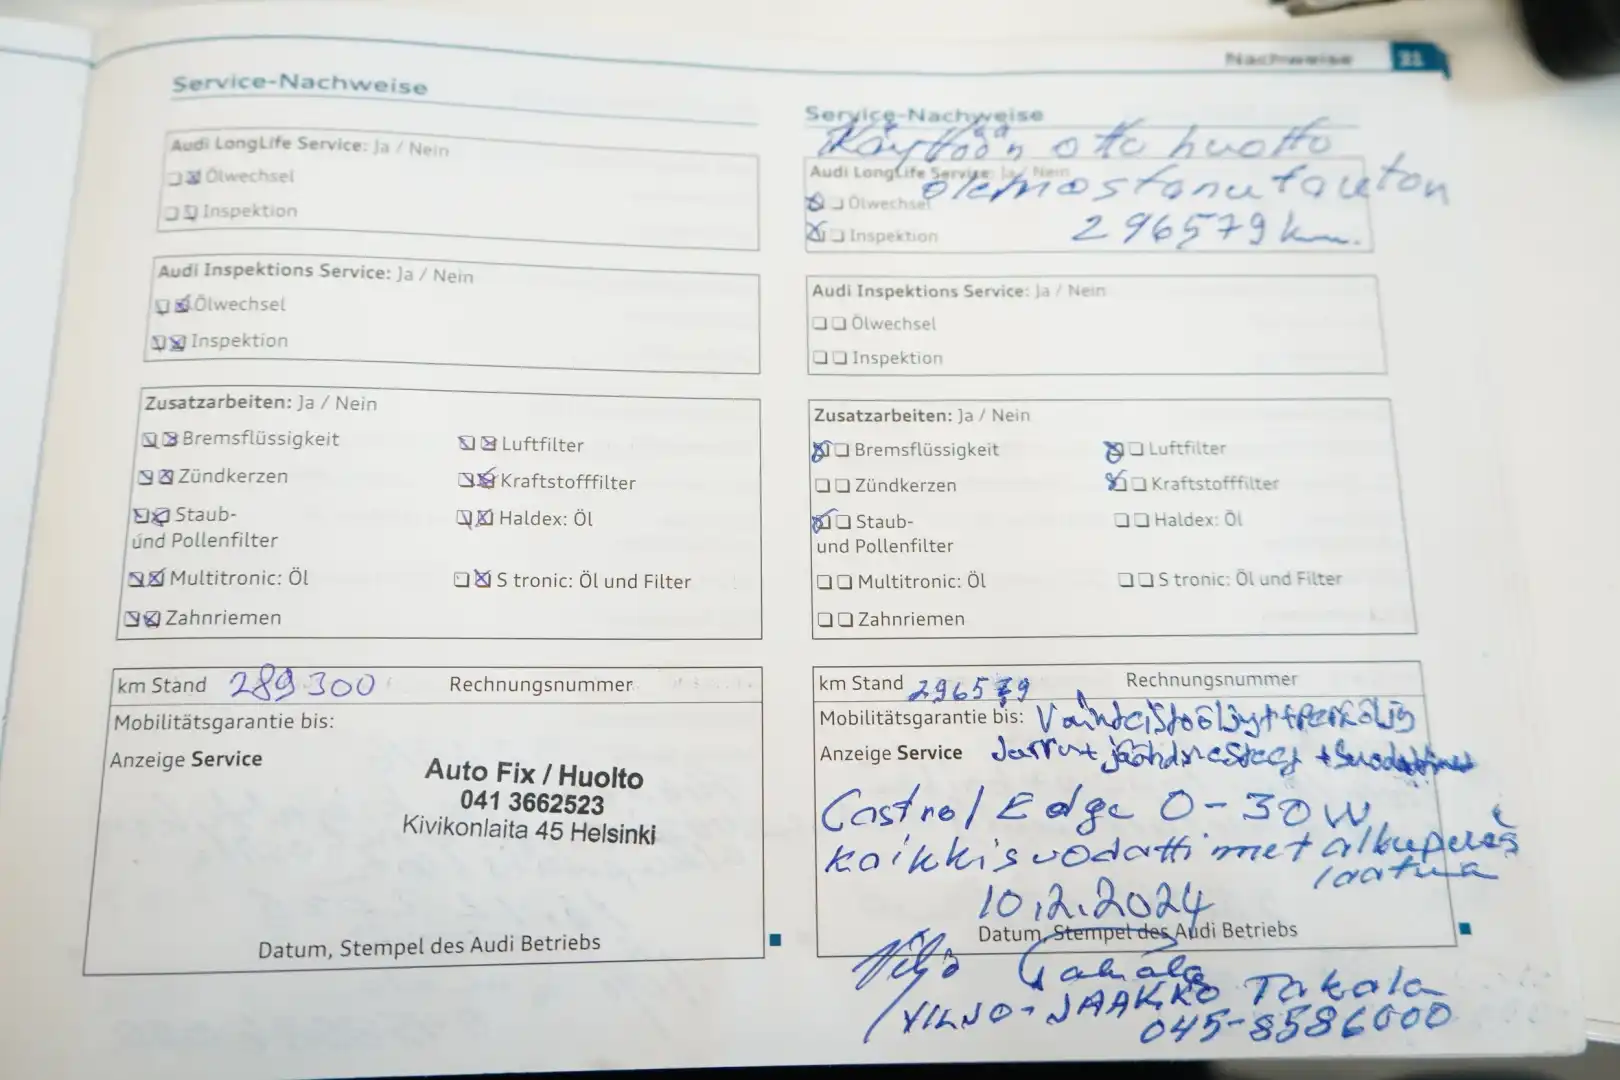 Nachweise 21
Service-Nachweise
Audi LongLife Service: Ja / Nein
Ölwechsel
Inspektion
Audi Inspektions Service: Ja / Nein
Ölwechsel
Inspektion
Zusatzarbeiten: Ja / Nein
Bremsflüssigkeit
Luftfilter
Zündkerzen
Kraftstofffilter
Staub-
und Pollenfilter
Haldex: Öl
Multitronic: Öl
S tronic: Öl und Filter
Zahnriemen
km Stand 289300
Rechnungsnummer
Mobilitätsgarantie bis:
Anzeige Service
Auto Fix / Huolto
041 3662523
Kivikonlaita 45 Helsinki
Datum, Stempel des Audi Betriebs
Service-Nachweise
Käyttöön otto huolto
Audi LongLife Service: Ja / Nein
Ölwechsel
296579 km.
Inspektion
Audi Inspektions Service: Ja / Nein
Ölwechsel
Inspektion
Zusatzarbeiten: Ja / Nein
Bremsflüssigkeit
Luftfilter
Zündkerzen
Kraftstofffilter
Staub-
und Pollenfilter
Haldex: Öl
Multitronic: Öl
S tronic: Öl und Filter
Zahnriemen
km Stand 296579
Rechnungsnummer
Mobilitätsgarantie bis:
Anzeige Service
Castrol Edge 0-30W
kaikki suodattimet alkuperäs
laatua
10.2.2024
Datum, Stempel des Audi Betriebs
Viljo Takala
/VILJO-JAAKKO Takala
045-8586000